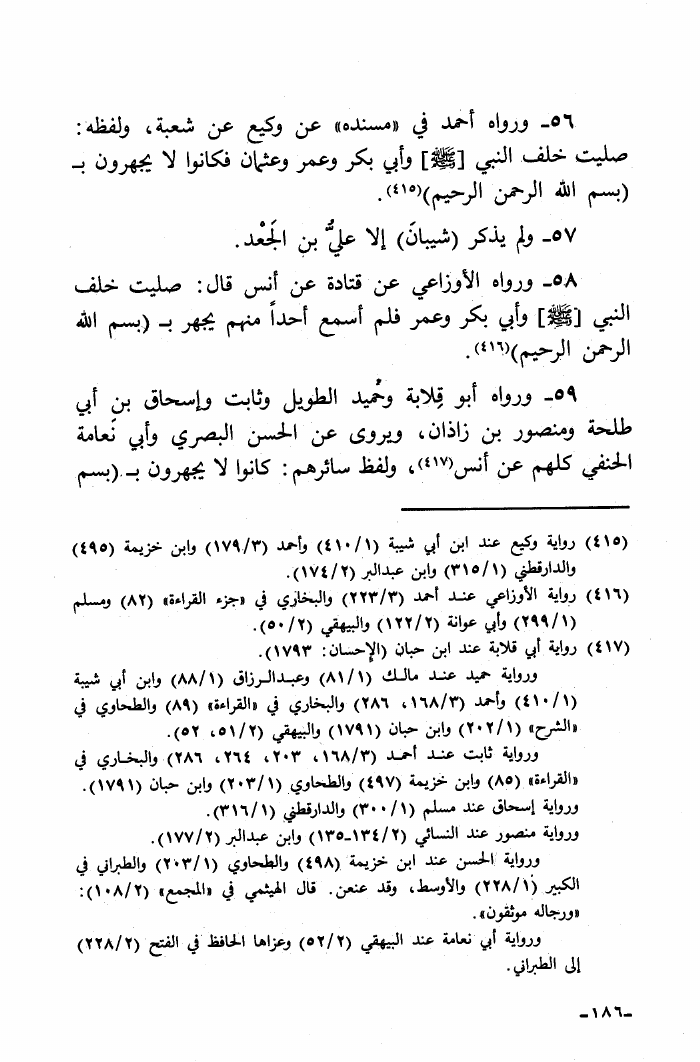 ٥٦ـ ورواه أحمد في «مسنده» عن وكيع عن شعبة، ولفظه:
صليت خلف النبي [ﷺ] وأبي بكر وعمر وعثمان فكانوا لا يجهرون بـ
(بسم الله الرحمن الرحيم)(٤١٥).
٥٧ـ ولم يذكر (شيبانَ) إلا عليُّ بن الجَعْد.
٥٨ـ ورواه الأوزاعي عن قتادة عن أنس قال: صليت خلف
النبي [ﷺ] وأبي بكر وعمر فلم أسمع أحداً منهم يجهر بـ (بسم الله
الرحمن الرحيم)(٤١٦).
٥٩ـ ورواه أبو قِلابة وحُميد الطويل وثابت وإسحاق بن أبي
طلحة ومنصور بن زاذان، ويروى عن الحسن البصري وأبي نَعامة
الحنفي كلهم عن أنس(٤١٧)، ولفظ سائرهم: كانوا لا يجهرون بـ (بسم
(٤١٥) رواية وكيع عند ابن أبي شيبة (٤١٠/١) وأحمد (١٧٩/٣) وابن خزيمة (٤٩٥)
والدارقطني (٣١٥/١) وابن عبدالبر (١٧٤/٢).
(٤١٦) رواية الأوزاعي عند أحمد (٢٢٣/٣) والبخاري في «جزء القراءة» (٨٢) ومسلم
(٢٩٩/١) وأبي عوانة (١٢٢/٢) والبيهقي (٥٠/٢).
(٤١٧) رواية أبي قلابة عند ابن حبان (الإحسان: ١٧٩٣).
ورواية حميد عند مالك (٨١/١) وعبدالرزاق (٨٨/١) وابن أبي شيبة
(٤١٠/١) وأحمد (١٦٨/٣، ٢٨٦) والبخاري في «القراءة» (٨٩) والطحاوي في
«الشرح» (٢٠٢/١) وابن حبان (١٧٩١) والبيهقي (٥١/٢، ٥٢).
ورواية ثابت عند أحمد (١٦٨/٣، ٢٠٣، ٢٦٤، ٢٨٦) والبخاري في
«القراءة» (٨٥) وابن خزيمة (٤٩٧) والطحاوي (٢٠٣/١) وابن حبان (١٧٩١).
ورواية إسحاق عند مسلم (٣٠٠/١) والدارقطني (٣١٦/١).
ورواية منصور عند النسائي (١٣٤/٢ـ١٣٥) وابن عبدالبر (١٧٧/٢).
ورواية الحسن عند ابن خزيمة (٤٩٨) والطحاوي (٢٠٣/١) والطبراني في
الكبير (٢٢٨/١) والأوسط، وقد عنعن. قال الهيثمي في «المجمع» (١٠٨/٢):
«ورجاله موثقون».
ورواية أبي نعامة عند البيهقي (٥٢/٢) وعزاها الحافظ في الفتح (٢٢٨/٢)
إلى الطبراني.
ـ١٨٦ـ